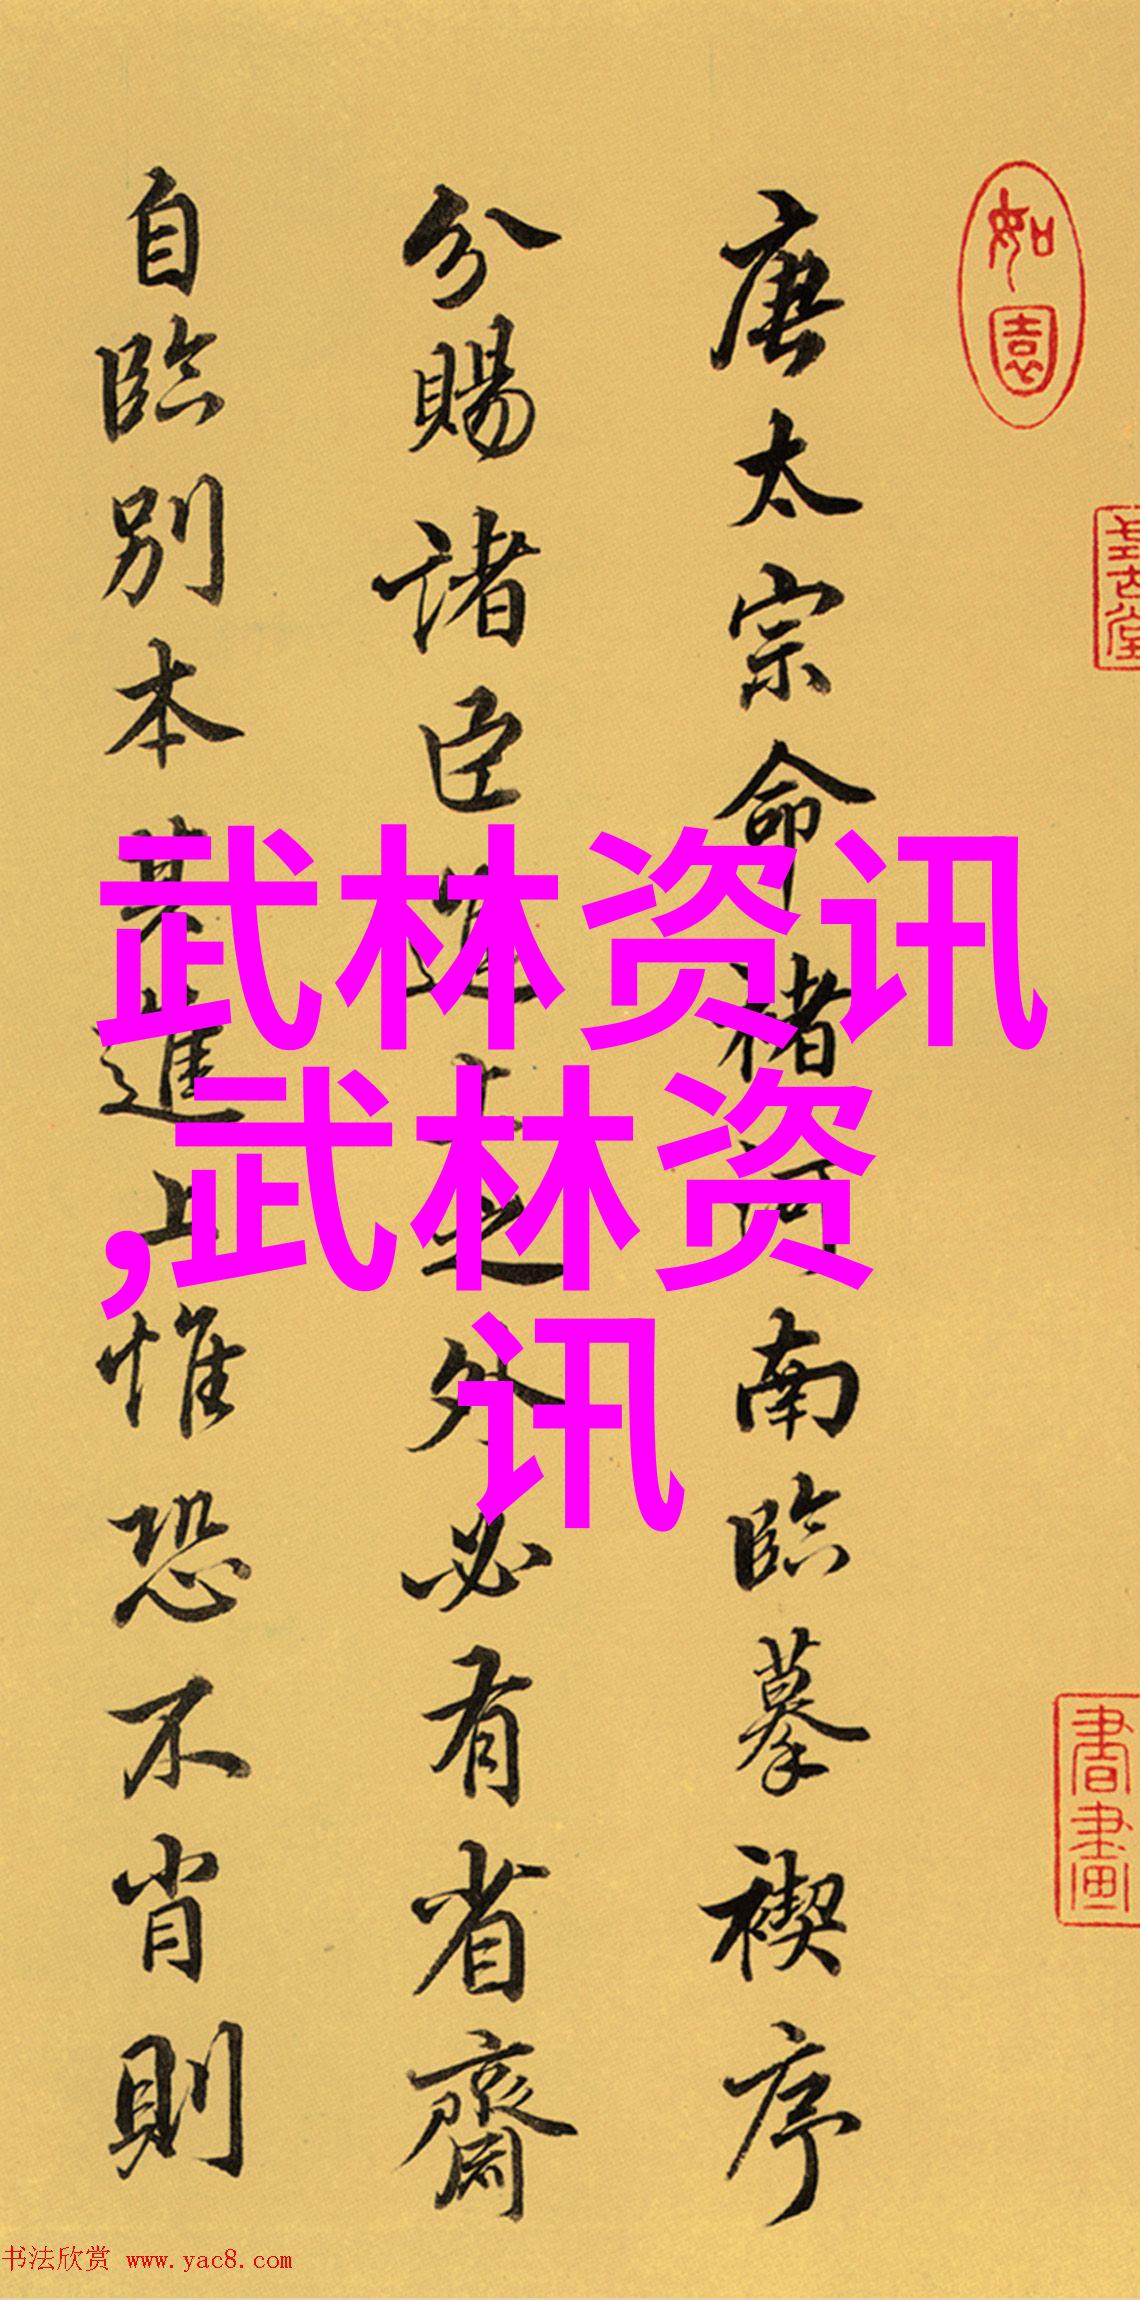 如園
書畫
唐太宗命褚河南臨摹禊序
分賜諸臣進上之外必有省齋
自臨別本其進上惟恐不肖則
武林资讯
,武林资
讯
书法欣赏 www.yac8.com